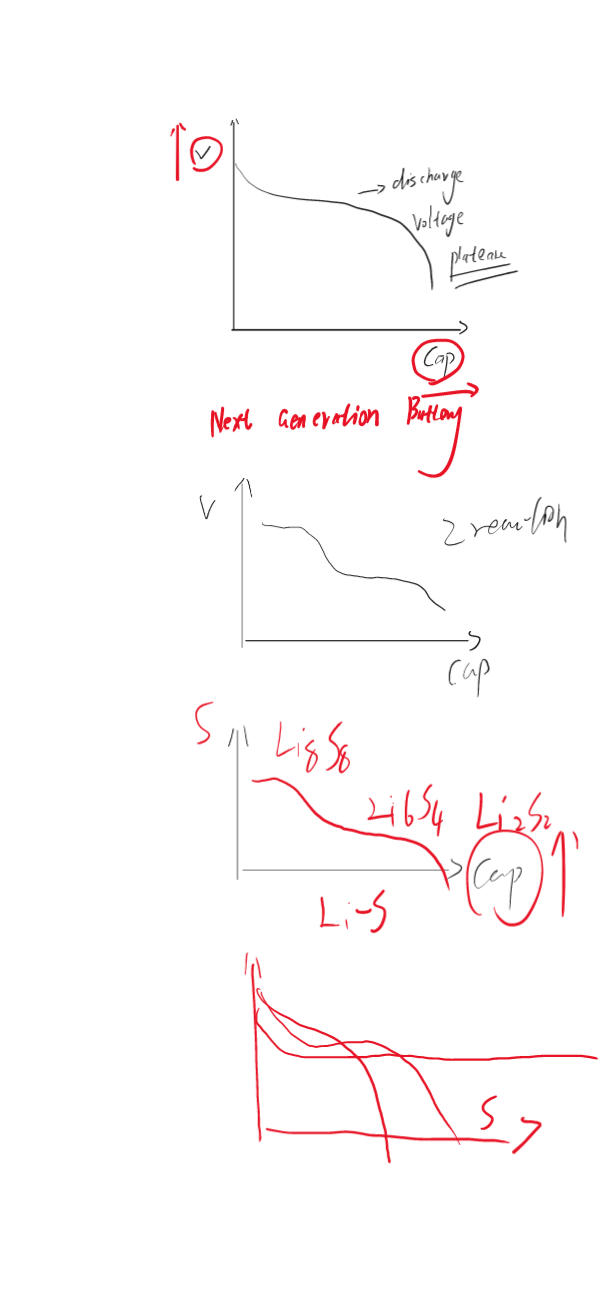 V
→ discharge
voltage
plateau
Cap
Next Generation Battery
V
2 reaction
Cap
S
Li8S8
Li6S4 Li2S2
Cap
Li-S
S